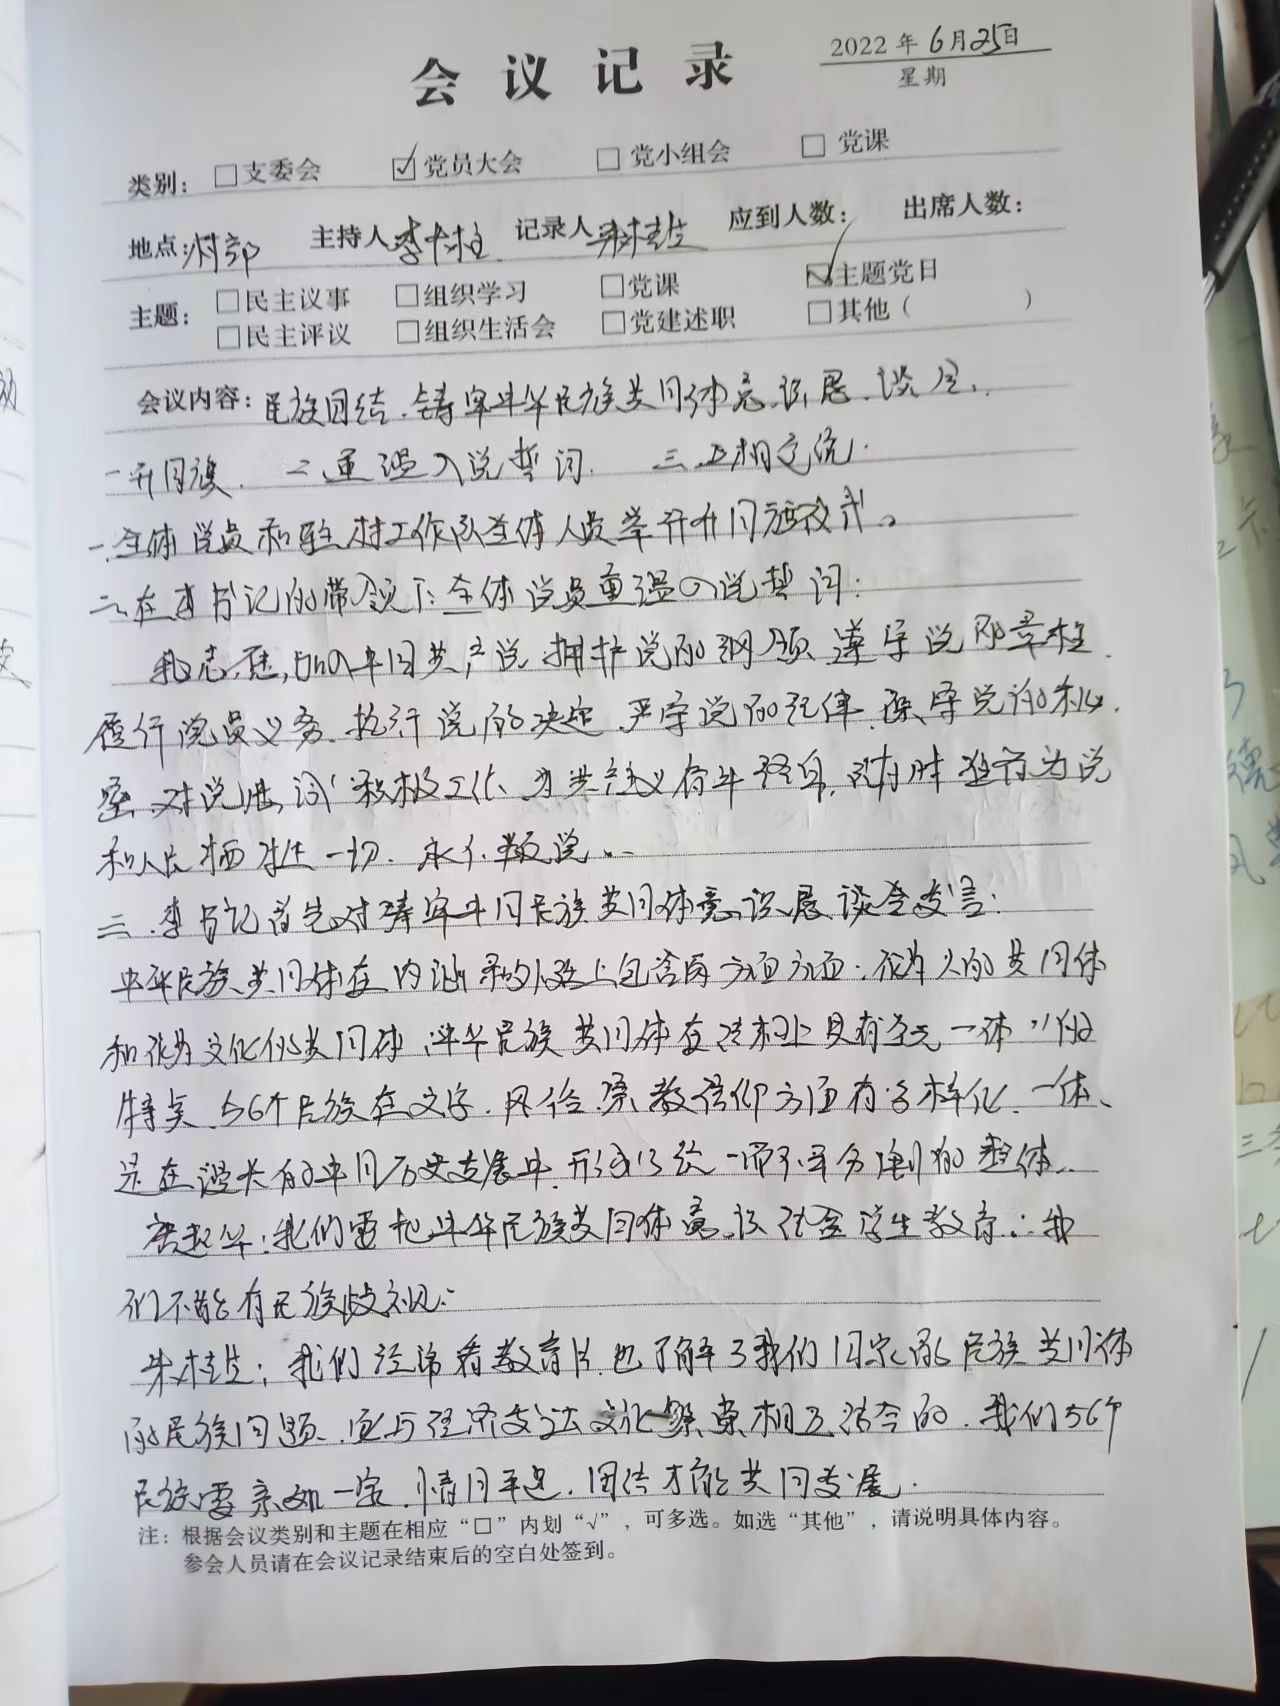 会议记录
2022年6月25日
星期
类别：□支委会 ☑党员大会 □党小组会 □党课
地点：村部 主持人 李 柱 记录人 朱桂生 应到人数： 出席人数：
主题： □民主议事 □组织学习 □党课 ☑主题党日
□民主评议 □组织生活会 □党建述职 □其他（ ）
会议内容：民族团结.铸牢中华民族共同体意识.座谈会.
一升国旗. 二.重温入党誓词. 三.互相交流.
一.全体党员和驻村工作队全体人员举行升国旗仪式。
二、在李书记的带领下.全体党员重温入党誓词：
我志愿,加入中国共产党 拥护党的纲领 遵守党的章程.
履行党员义务.执行党的决定 严守党的纪律.保守党的秘
密.对党忠诚 积极工作.为共产主义奋斗终身,随时准备为党
和人民牺牲一切.永不叛党..
三.李书记首先对铸牢中国民族共同体意识座谈会发言：
中华民族共同体在内涵 上包含两方面.作为人的共同体
和作为文化的共同体,中华民族共同体在结构上具有多元一体"的
特点.56个民族在文字.风俗.宗教信仰方面有多样化.一体、
是在漫长的中国历史发展中.形成了统一而不可分割的整体.
起华：我们要把中华民族共同体意识 学生教育.:我
们不能有民族歧视:
朱桂生：我们经常看教育片也了解了我们国家 民族共同体
的民族问题. 与经济发达文化繁荣相互结合的.我们56个
民族要亲如一家. .团结才能共同发展.
注：根据会议类别和主题在相应“□”内划“√”，可多选。如选“其他”，请说明具体内容。
参会人员请在会议记录结束后的空白处签到。